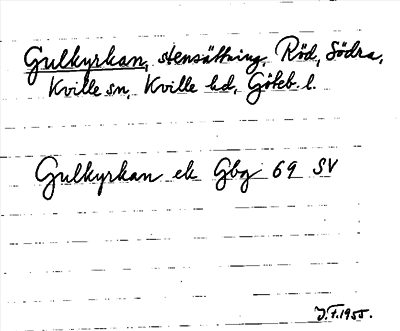 Gulkyrkan, stensättning, Röd, Södra,
Kville sn, Kville hd, Göteb. l.
Gulkyrkan ek Gbg 69 SV
J.F. 1955.